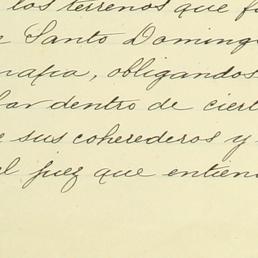 los terrenos que
Santo Domingo
obligandos
dentro de
sus coherederos y
juez que entien